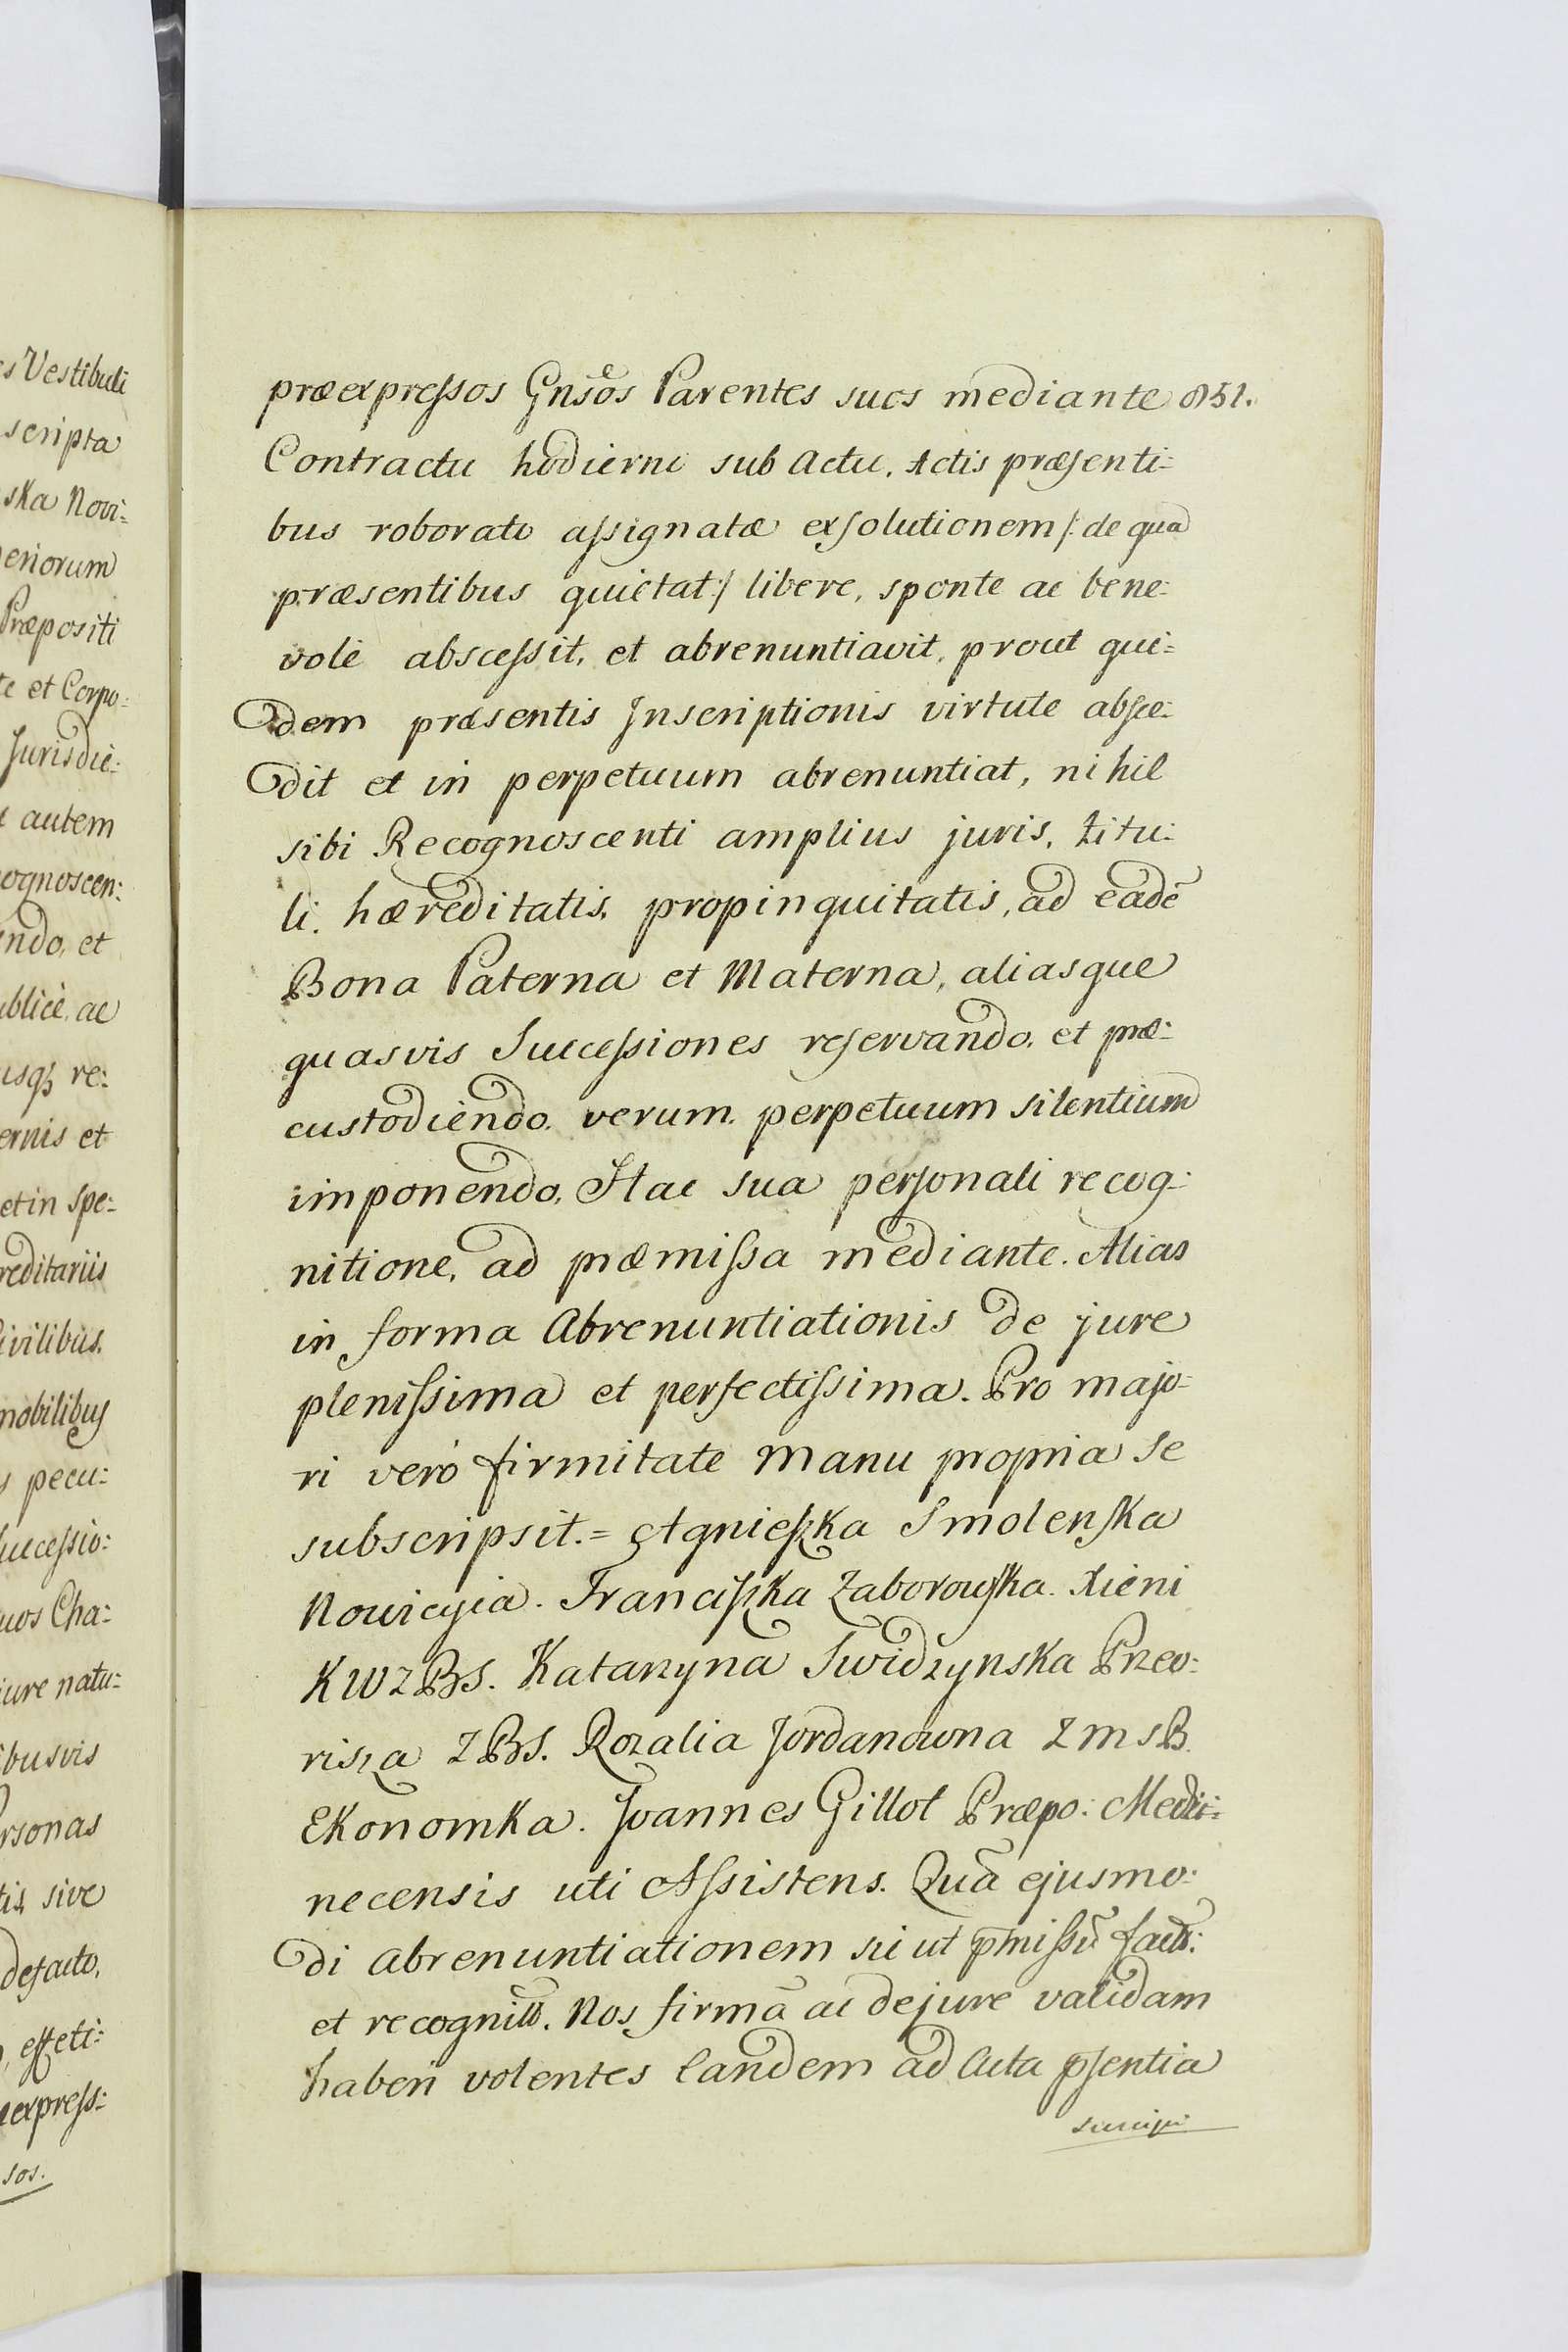 s Vestibuli
scripta
ska Novi:
eriorum
Præpositi
te et Corpo:
Jurisdic:
autem
ognoscen:
endo, et
ublicè, ac
usq3 re:
ernis et
et in spe:
reditariis
ivilibus.
mobilibus
pecu:
Successio:
uos Cha:
jure natu:
ibusvis
Personas
tis, sive
defacto,
effeti:
expreſs:
sos.
præexpreſsos Gnsos Parentes suos mediante 851.
Contractu hodierno sub Actu, Actis præsenti:
bus roborato aſsignatæ exsolutionem /: de qua
præsentibus quietat :/ libere, sponte ac bene:
volè abſceſsit, et abrenuntiavit, prout qui:
dem præsentis Inscriptionis virtute absce:
dit et in perpetuum abrenuntiat, nihil
sibi Recognoscenti amplius juris, titu:
li, hæreditatis, propinquitatis, ad eadē
Bona Paterna et Materna, aliasque
quasvis Succeſsiones reservando, et præ:
custodiendo, verum perpetuum silentium
imponendo, Hac sua personali recog:
nitione, ad præmiſsa mediante. Alias
in forma Abrenuntiationis de jure
pleniſsima et perfectiſsima. Pro majo:
ri verò firmitate manu propria se
subscripsit. = Agnieſzka Smolenska
Nowicyia. Franciſzka Zaborowska. Xieni
KWZBS. Katarzyna Swidzynska Przeo:
risza ZBS. Rozalia Jordanowna ZMSB.
Ekonomka. Joannes Gillot Præpo: Medie:
necensis uti Aſsistens. Quā ejusmo:
di abrenuntiationem sic ut p̄miſsū factā:
et recognitā. Nos firmā ac de jure validam
haberi volentes Eandem ad Acta p̄sentia
suscipi